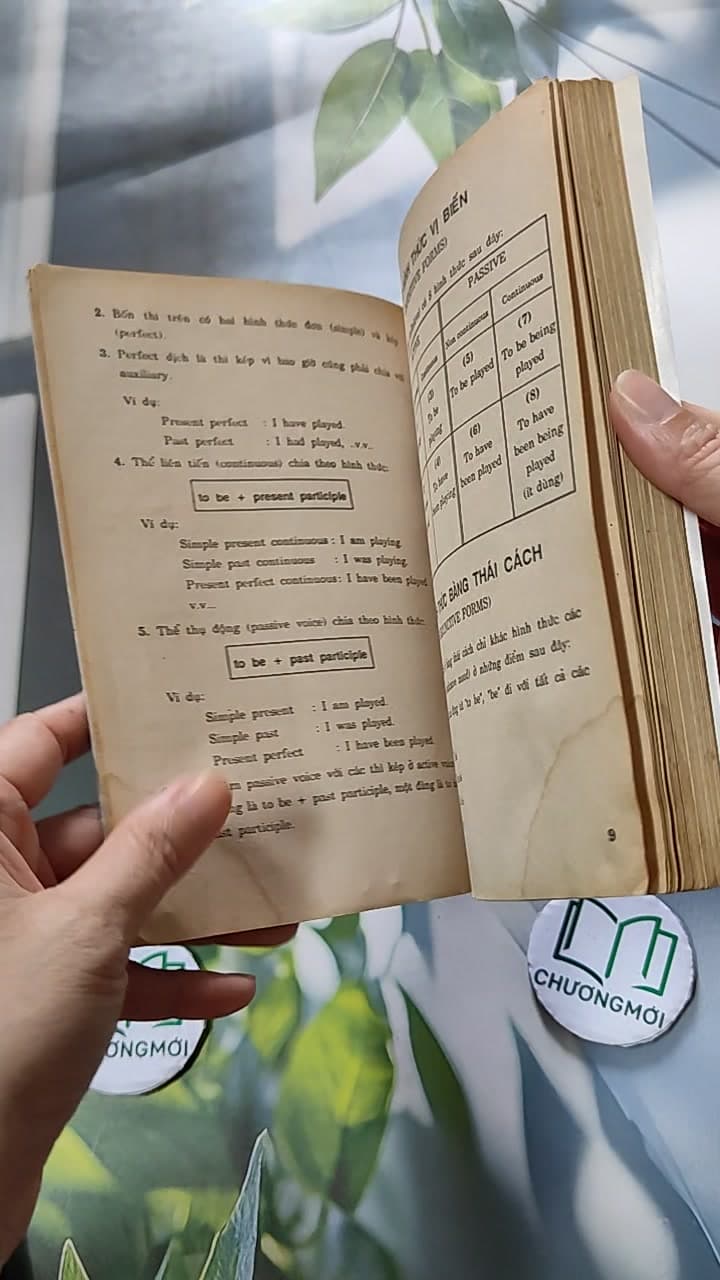 2. Bốn thì trên có hai hình thức đơn (simple) và kép
(perfect).
3. Perfect dịch là thì kép vì bao giờ cũng phải chia với
auxiliary.
Ví dụ:
Present perfect : I have played.
Past perfect : I had played, ..v.v..
4. Thể liên tiến (continuous) chia theo hình thức:
to be + present participle
Ví dụ:
Simple present continuous : I am playing.
Simple past continuous : I was playing.
Present perfect continuous: I have been played
v.v...
5. Thể thụ động (passive voice) chia theo hình thức:
to be + past participle
Ví dụ:
Simple present : I am played.
Simple past : I was played.
Present perfect : I have been played.
passive voice với các thì kép ở active
là to be + past participle, một đằng là to
participle.
THỨC VỊ BIẾN
FORMS)
có 8 hình thức sau đây:
PASSIVE
Non continuous
Continuous
(3)
To be
playing
(5)
To be played
(7)
To be being
played
(4)
To have
been playing
(6)
To have
been played
(8)
To have
been being
played
(ít dùng)
THỨC BÀNG THÁI CÁCH
FORMS)
thái cách chỉ khác hình thức các
ở những điểm sau đây:
"to be", "be" đi với tất cả các
9
CHƯƠNGMỚI
ƠNGMỚI